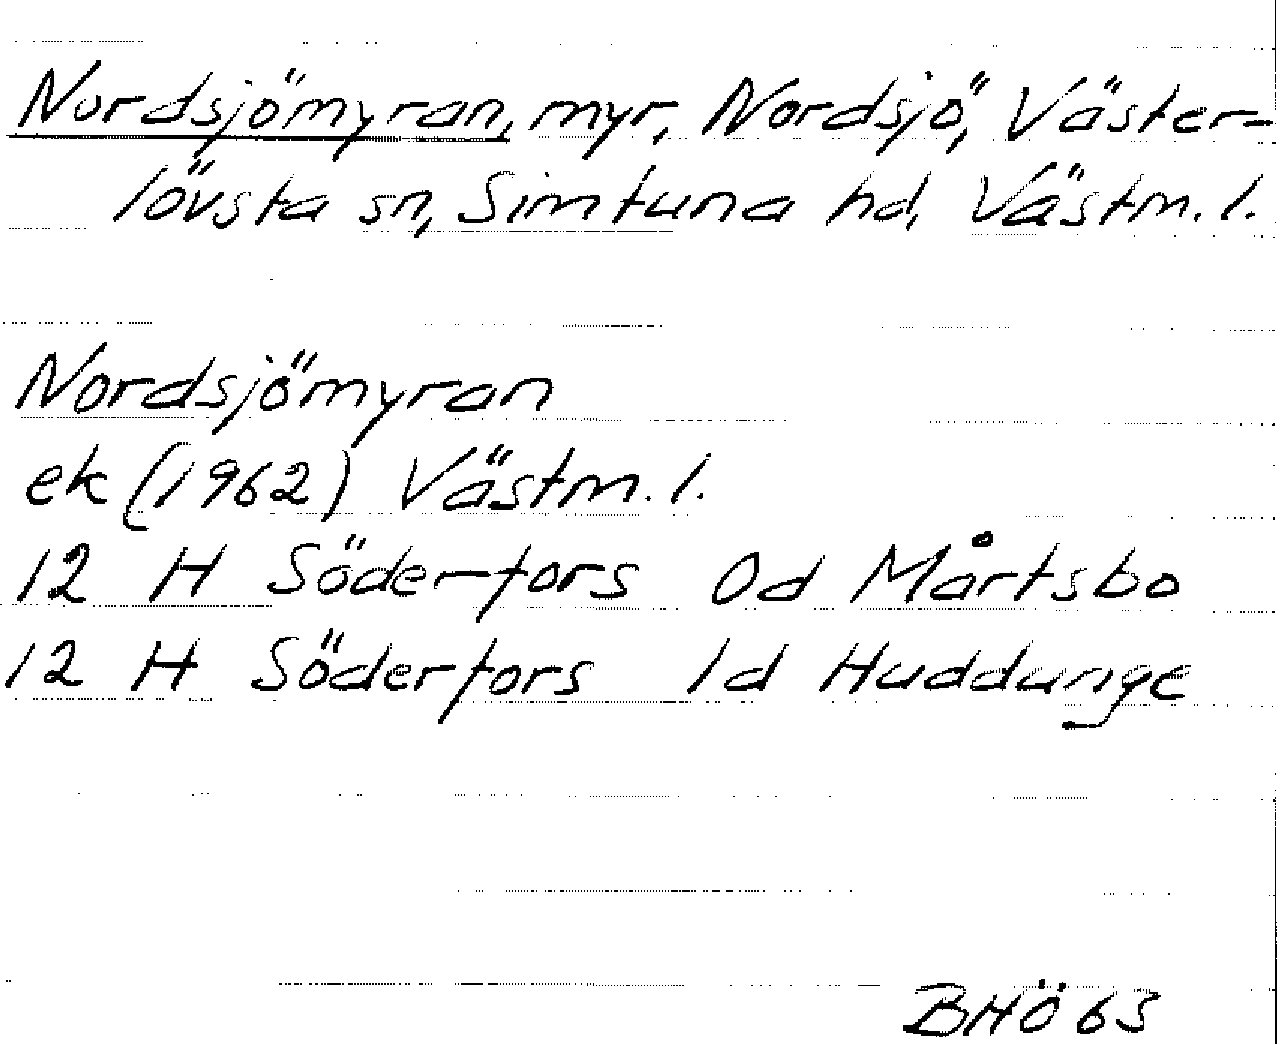 Nordsjömyran, myr, Nordsjö, Väster-
lövsta sn, Simtuna hd, Västm. l.
Nordsjömyran
ek (1962) Västm. l.
12 H Söderfors 0d Mårtsbo
12 H Söderfors 1d Huddunge
BHÖ 65